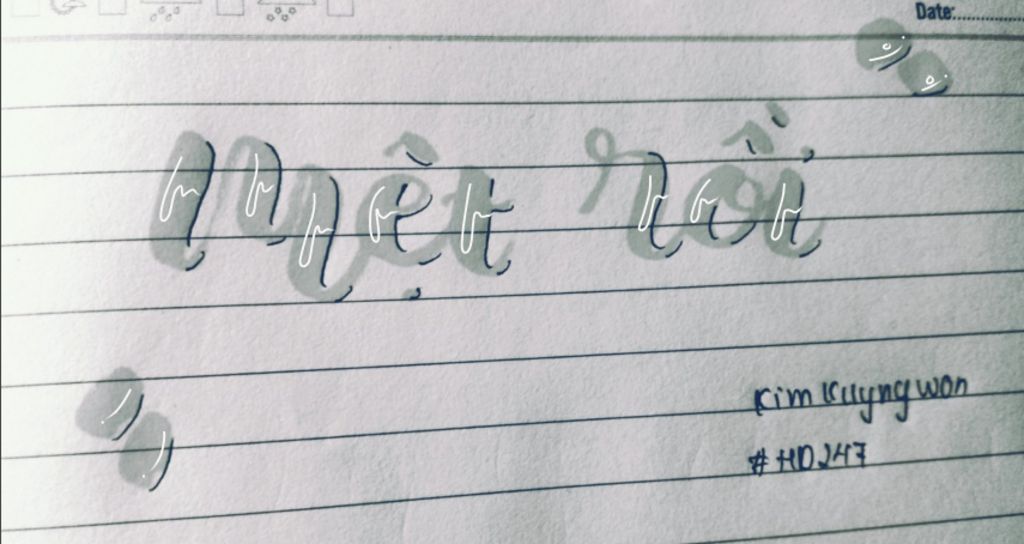 Date:
Mệt rồi
Kim Kuyng won
#HD247